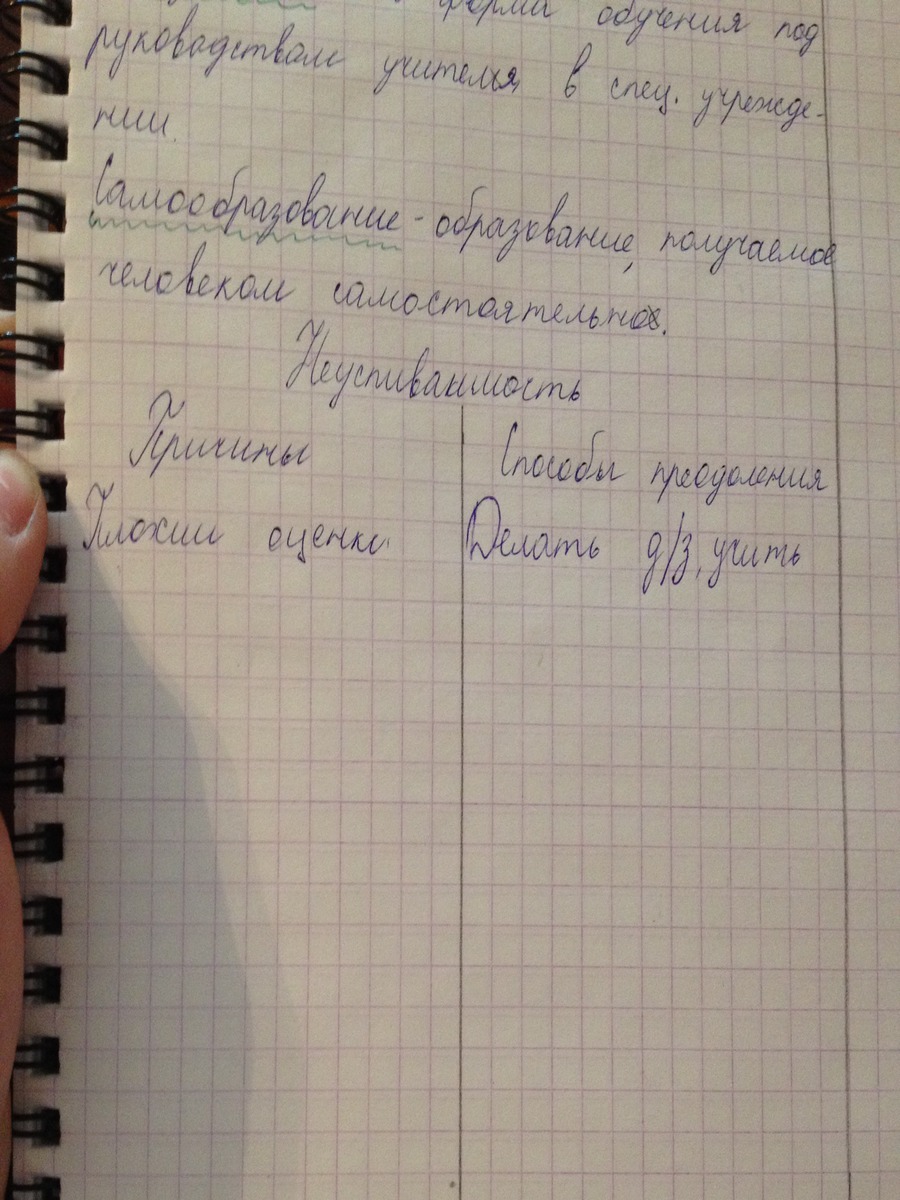 форма обучения под
руководством учителья, в спец. учрежде-
нии.
Самообразование - образование, получаемое
человеком самостоятельно.
Неуспиваимость
Причины Способы преодоления
Плохии оценки Делать д/з, учить